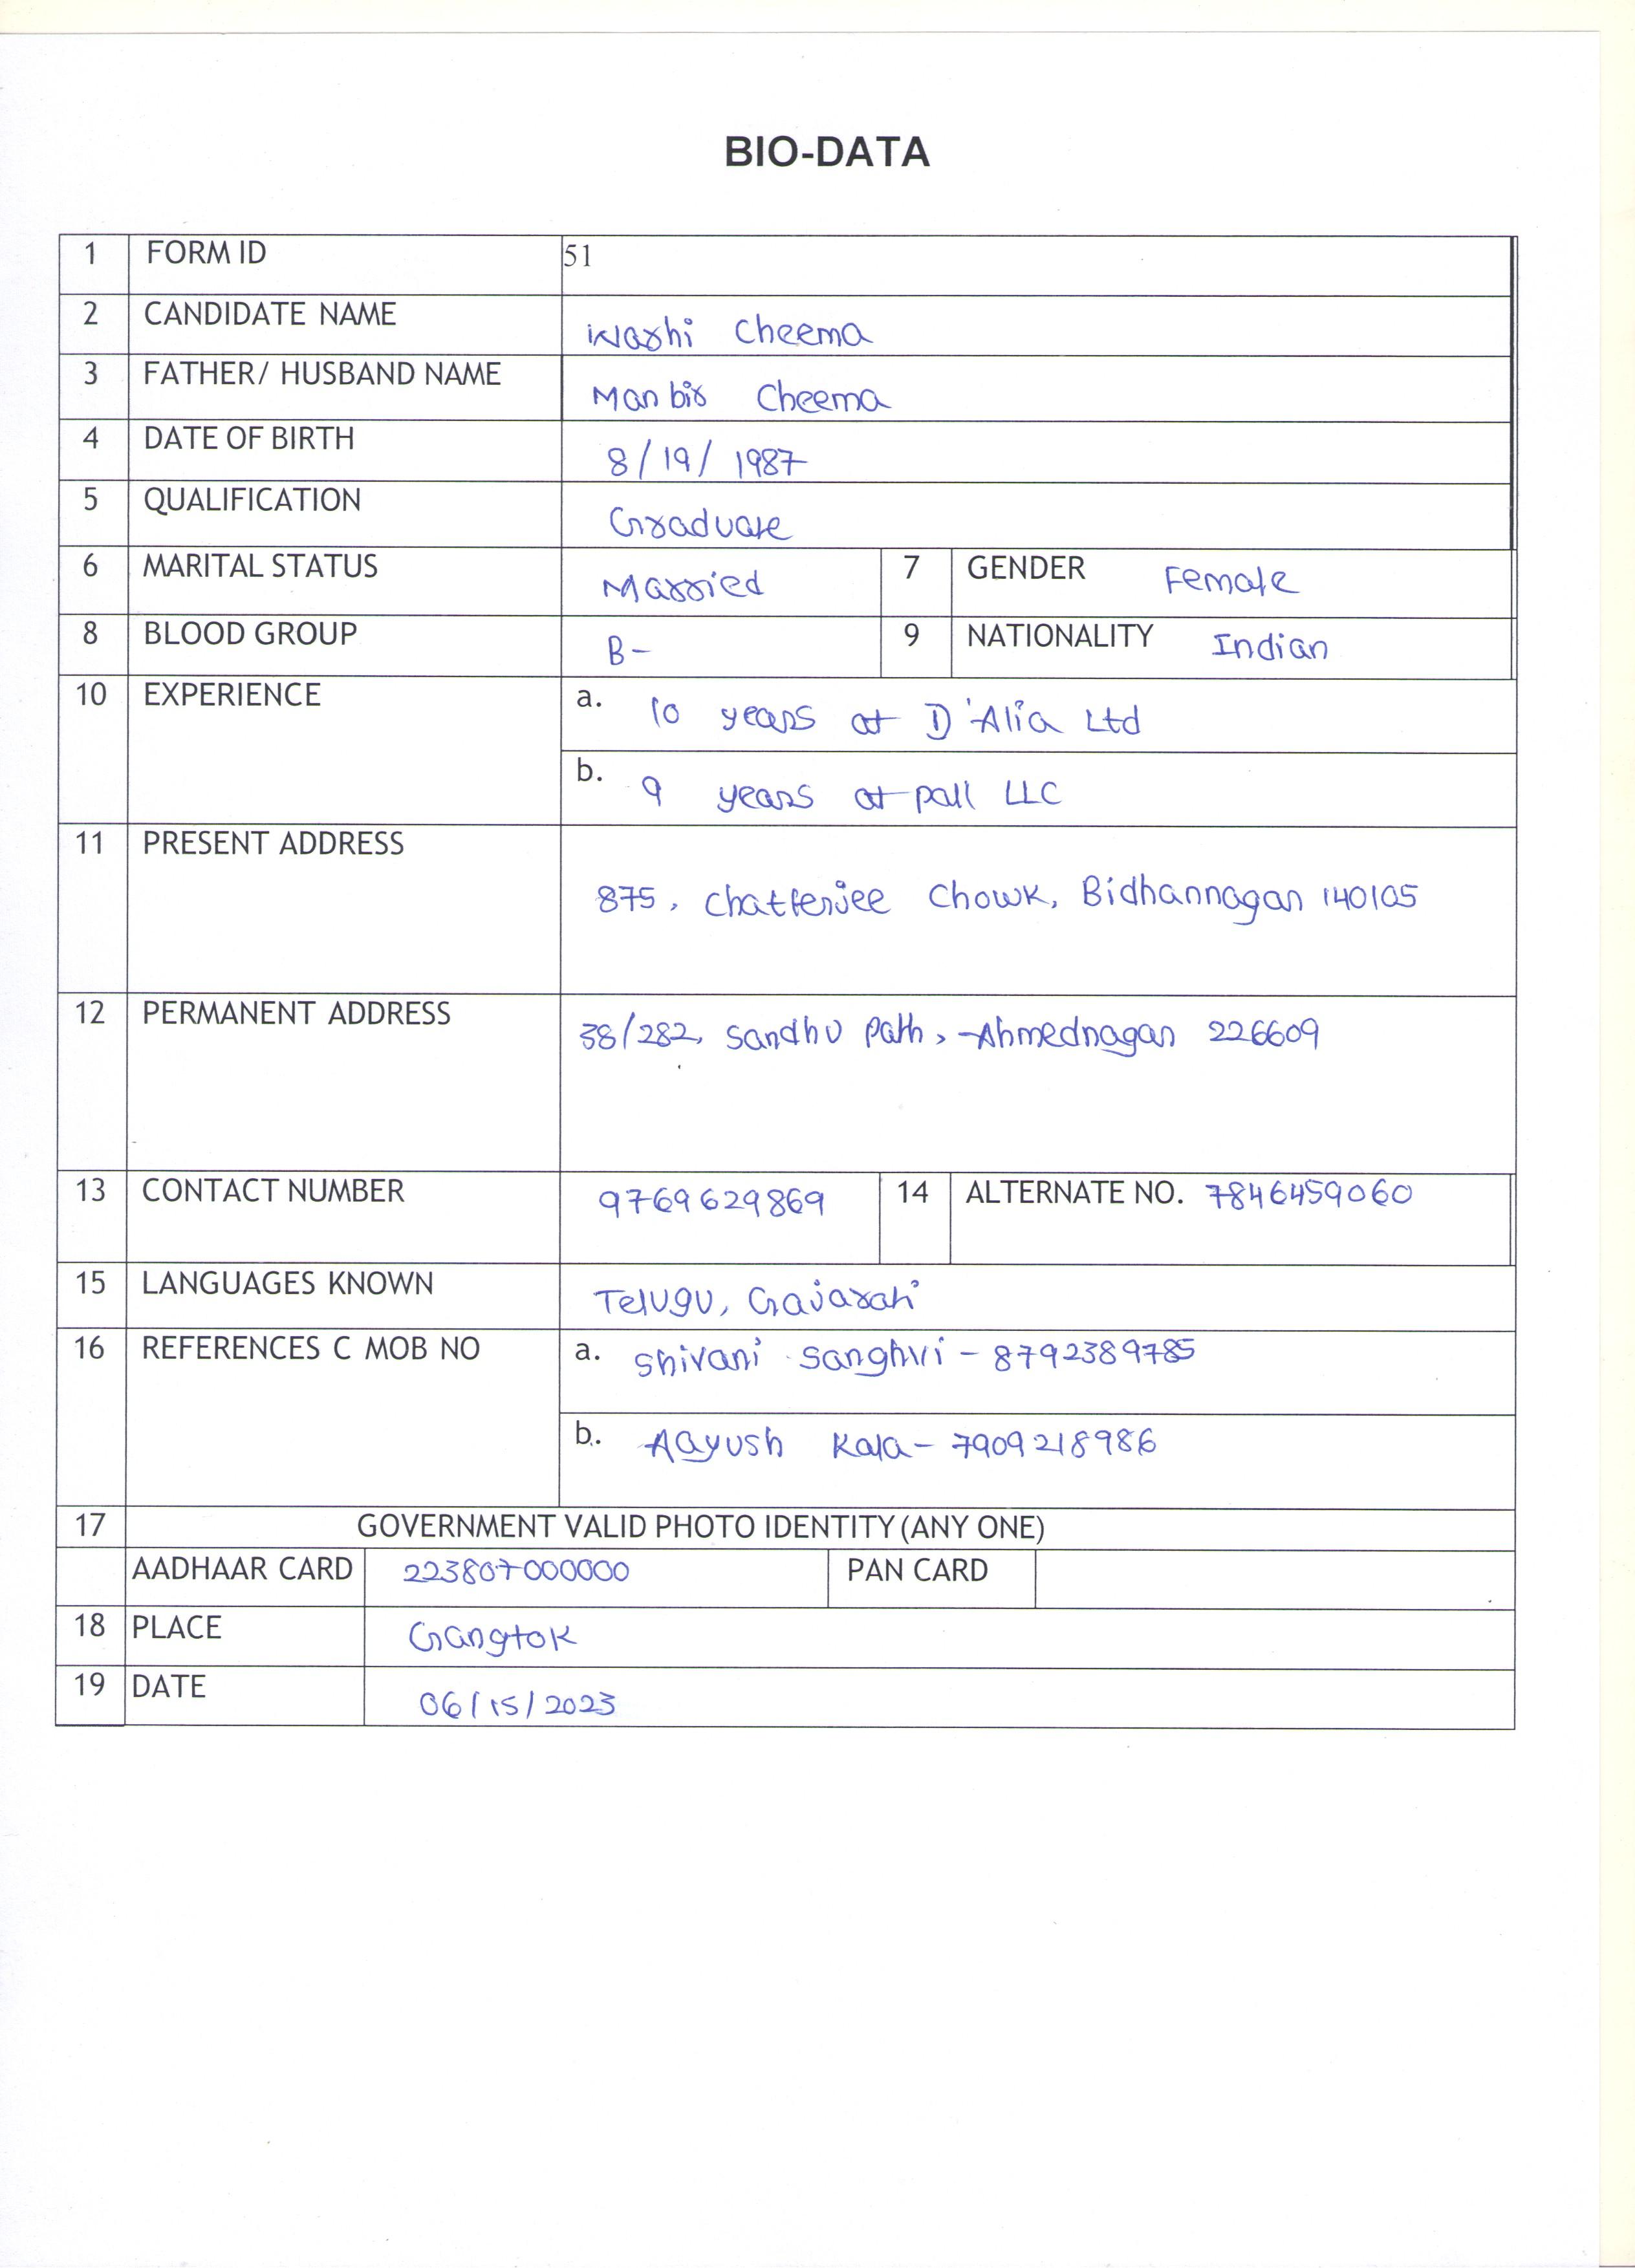 BIO-DATA
1 FORM ID 51
2 CANDIDATE NAME Cheema
3 FATHER/ HUSBAND NAME Manbir Cheema
4 DATE OF BIRTH 8/19/1987
5 QUALIFICATION Graduate
6 MARITAL STATUS Married 7 GENDER Female
8 BLOOD GROUP B- 9 NATIONALITY Indian
10 EXPERIENCE a. 10 years at D'Alia Ltd
b. 9 years at pall LLC
11 PRESENT ADDRESS 875, Chatterjee Chowk, Bidhannagar 140105
12 PERMANENT ADDRESS 38/282, Sandhu Path, Ahmednagar 226609
13 CONTACT NUMBER 9769629869 14 ALTERNATE NO. 7846459060
15 LANGUAGES KNOWN Telugu, Gajarati
16 REFERENCES C MOB NO a. Shivani Sanghvi - 8792389785
b. Aayush Kala - 7909218986
17 GOVERNMENT VALID PHOTO IDENTITY (ANY ONE)
AADHAAR CARD 223807000000 PAN CARD
18 PLACE Gangtok
19 DATE 06/15/2023